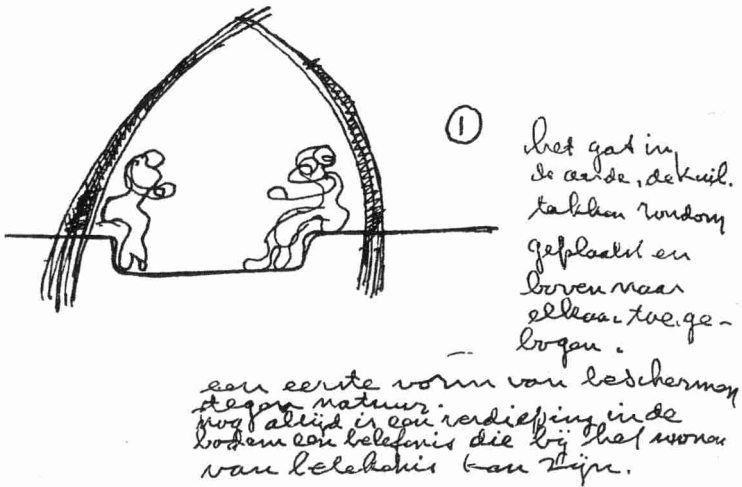 1
het gat in
de aarde, de kuil.
takken rondom
geplaatst en
boven naar
elkaar toe ge-
bogen.
een eerste vorm van beschermen
tegen natuur.
nog altijd is een verdieping in de
bodem een belefenis die bij het wonen
van betekenis kan zijn.